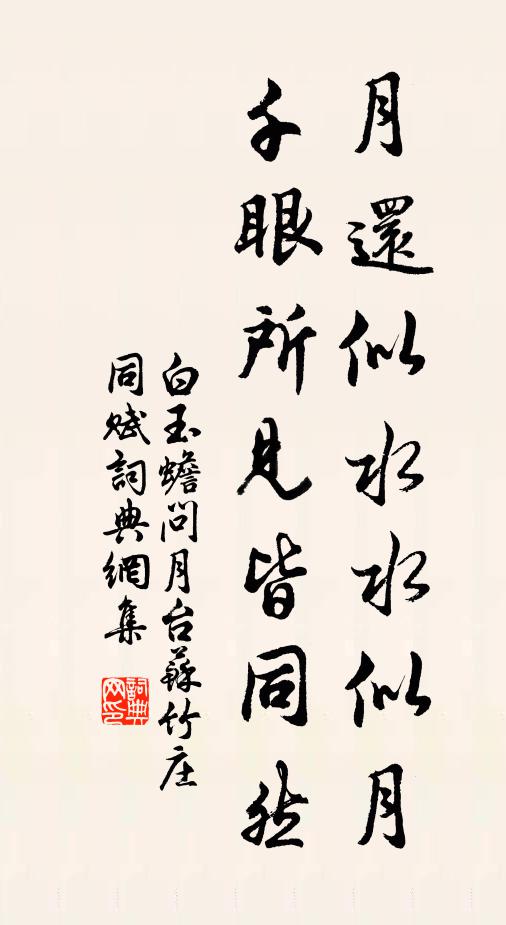 月還似水水似月
千眼所見皆同然
白玉蟾問月台蘇竹庄
同賦詞典網集
詞典
网印